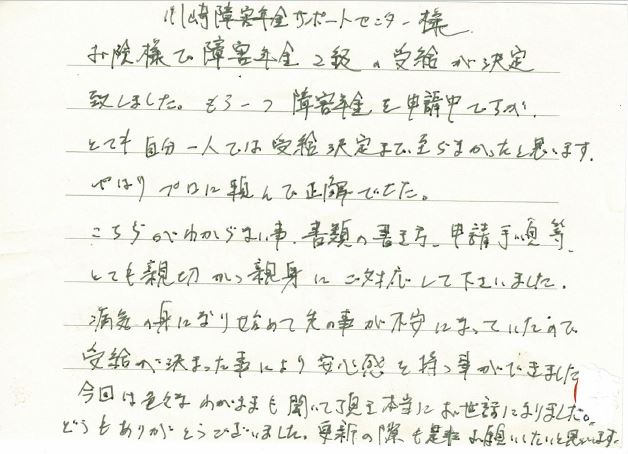 川崎障害年金サポートセンター様
お陰様で障害年金2級の受給が決定
致しました。もう一つ障害年金を申請中ですが、
とても自分一人では受給決定まで至らなかったと思います。
やはりプロに頼んで正解でした。
こちらがわからない事、書類の書き方、申請手順等、
とても親切かつ親身にご対応して下さいました。
病気の身になり始めて先の事が不安になっていたので
受給が決まった事により安心感を持つ事ができました
今回は色々なわがままも聞いて頂き本当にお世話になりました。
どうもありがとうございました。更新の際も是非お願いしたいと思います。